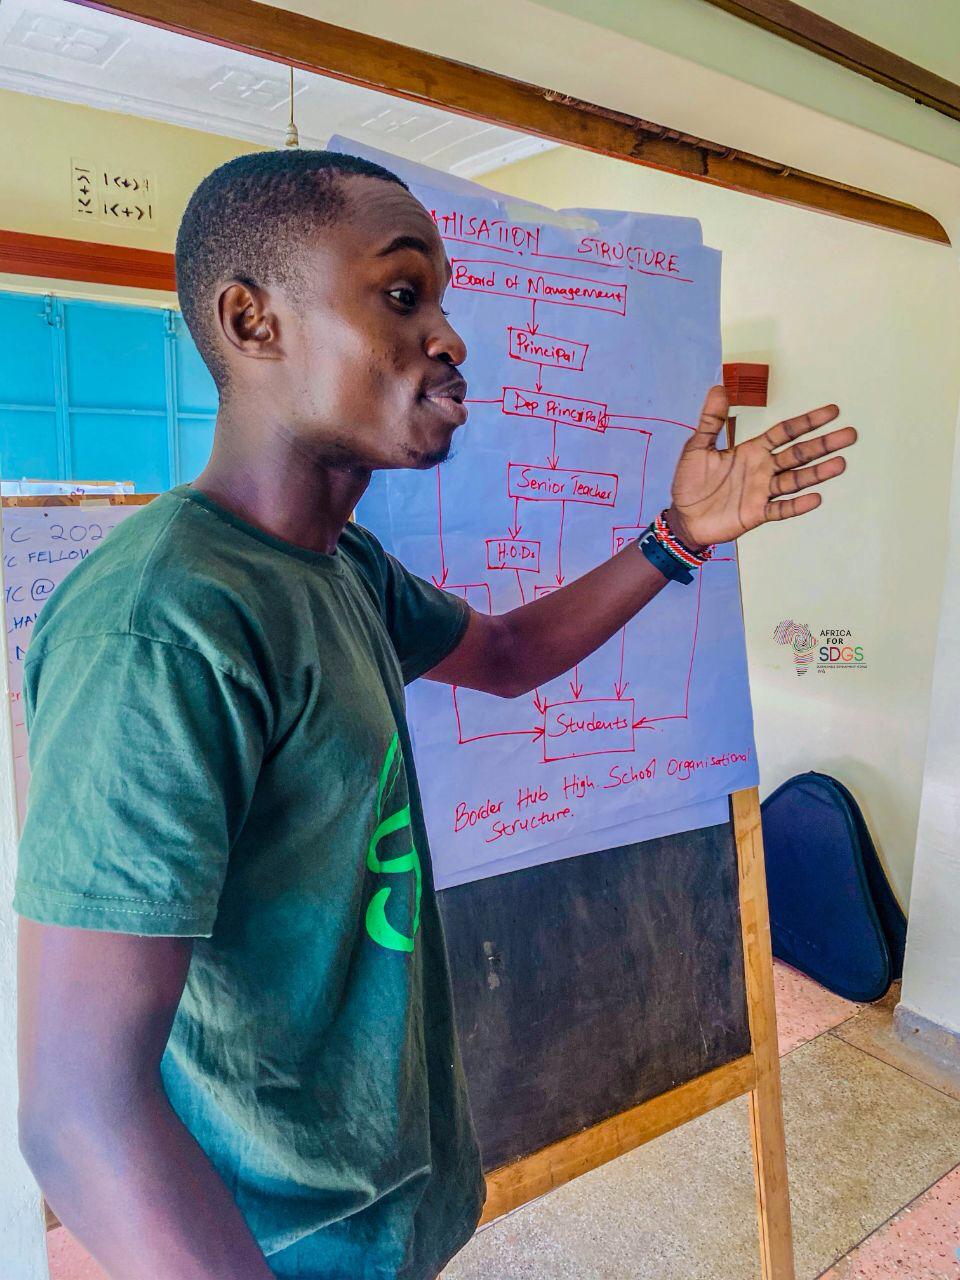 STRUCTURE
Board of Management
Principal
Dep Principals
Senior Teacher
H.O.Ds
Students
Border Hub High School Organisational
Structure.
C 202
FELLOW
@
AFRICA
FOR
SDGS